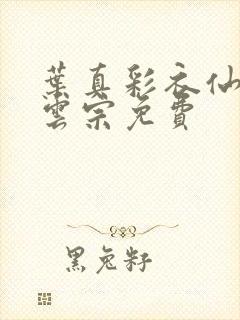 葉真彩衣仙
雲宗免費
黑兔籽